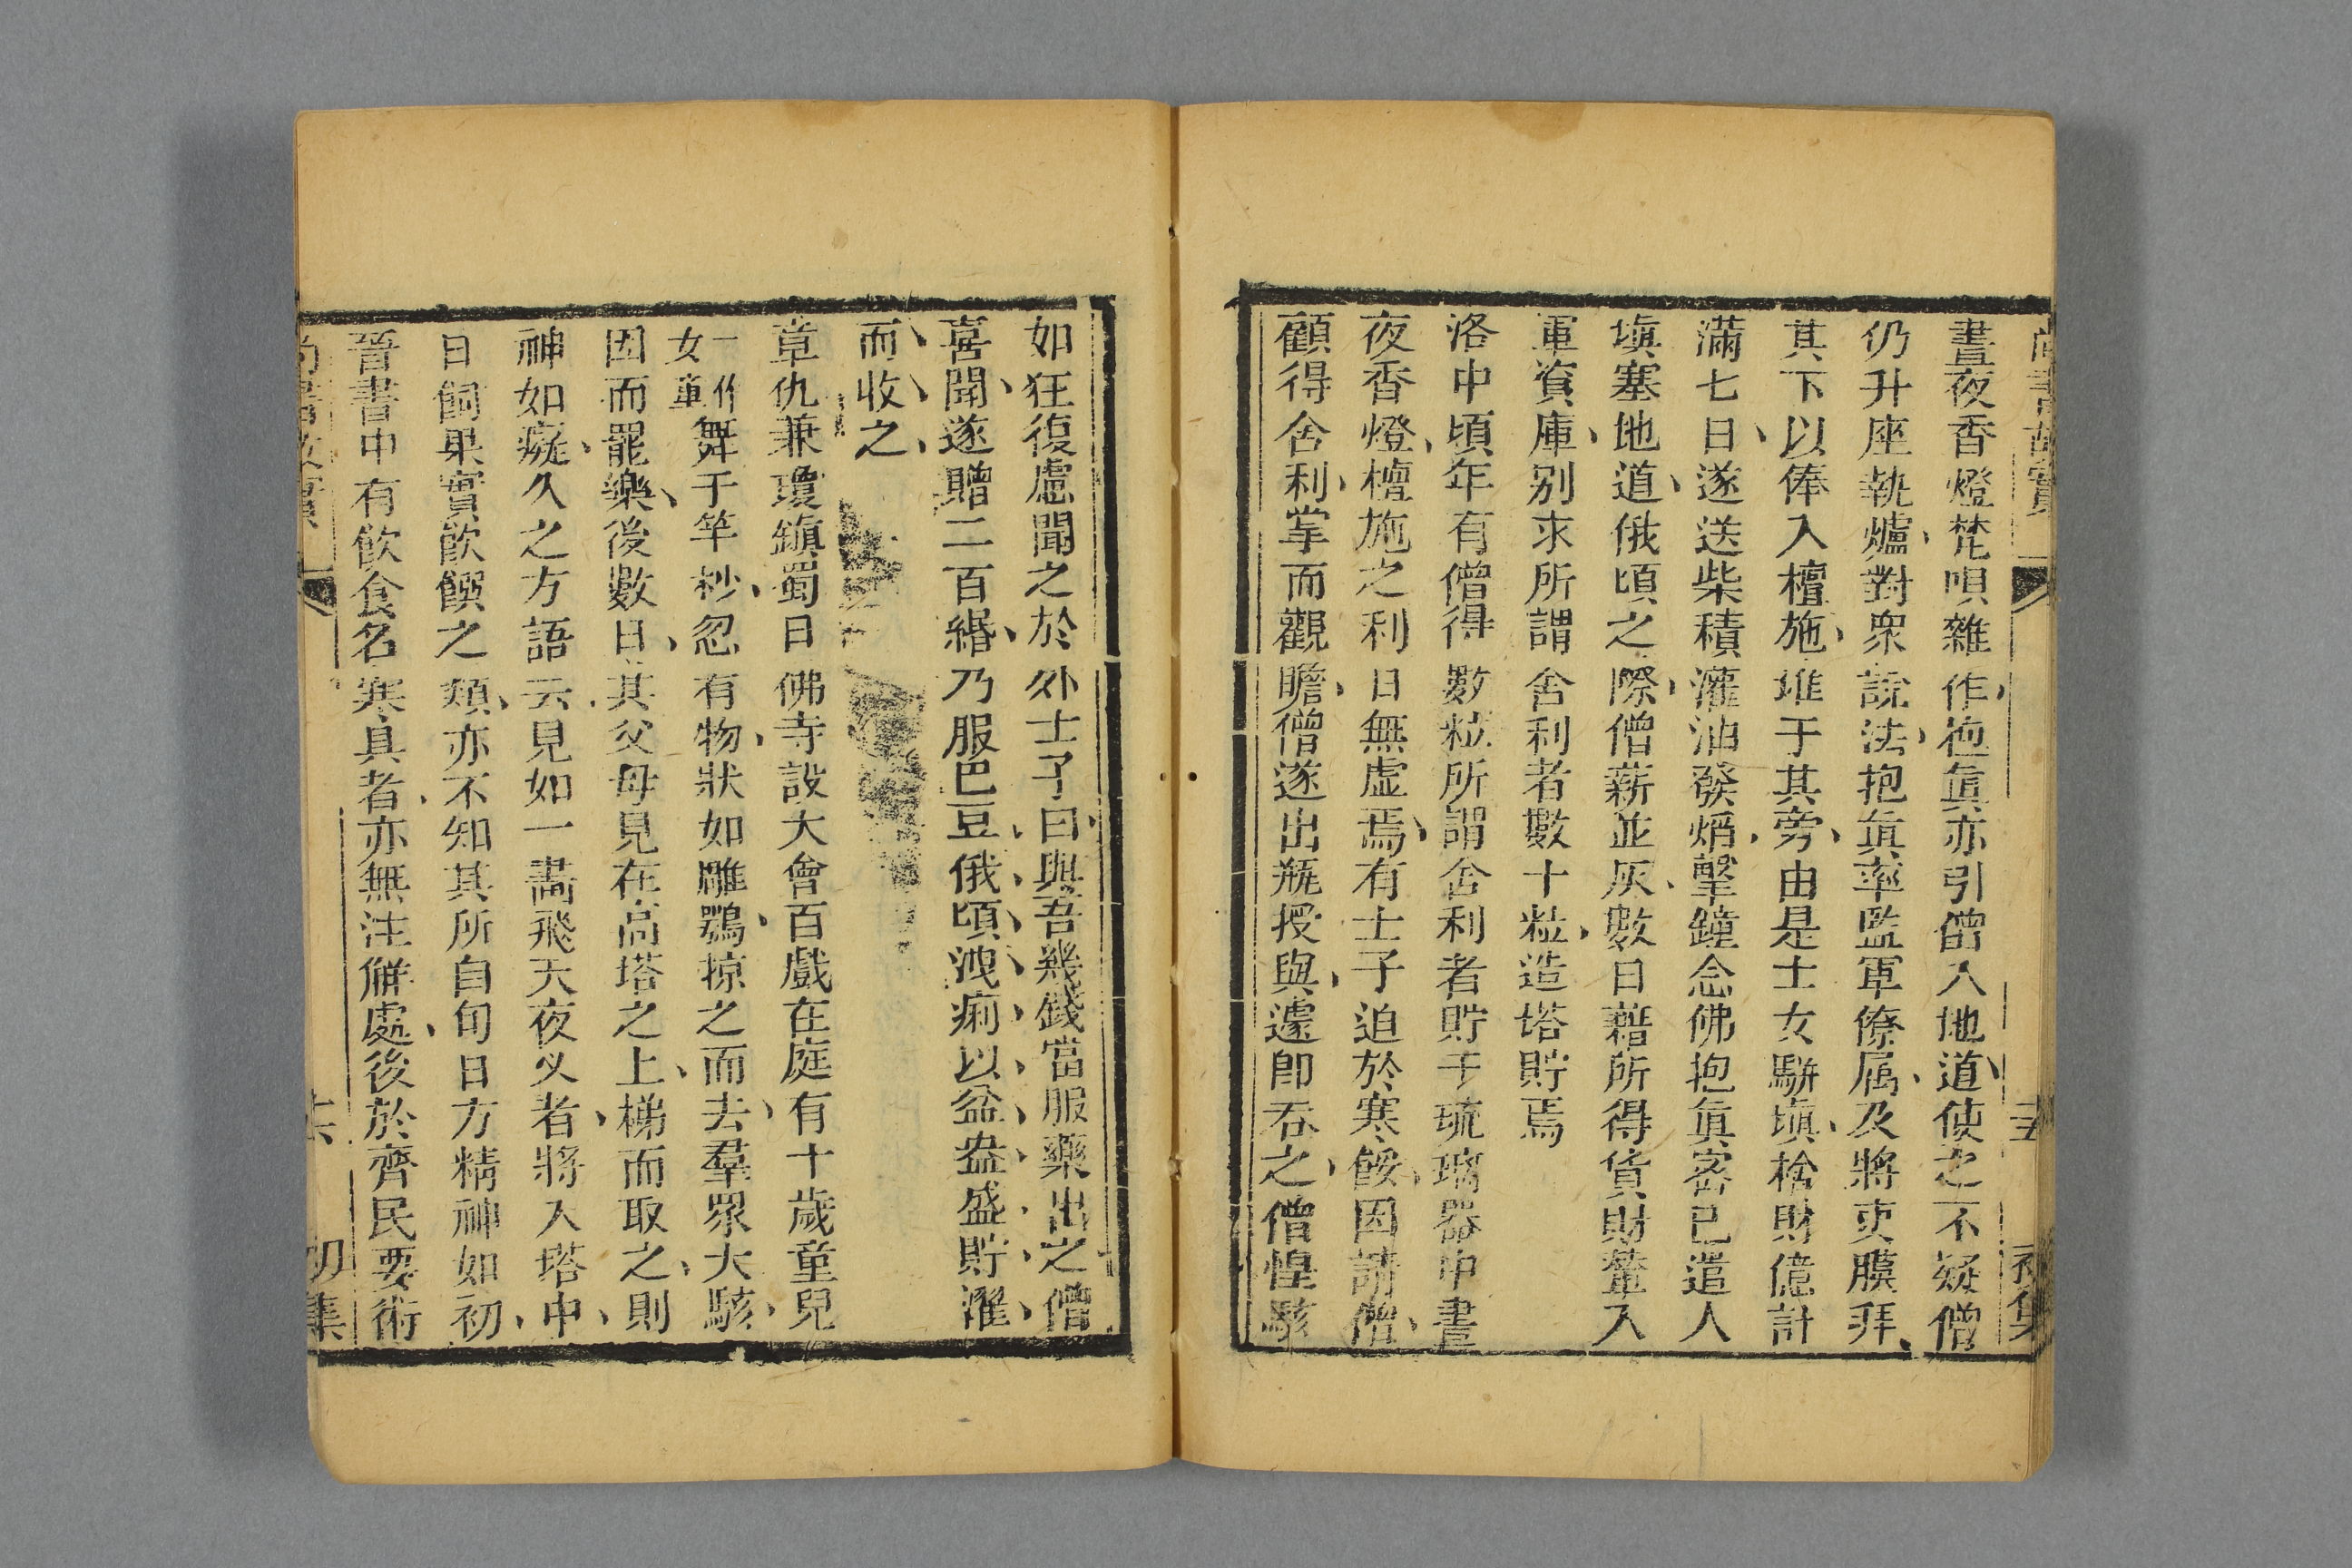 尚書故實
十五
初集
晝夜香燈梵唄雜作抱眞亦引僧入地道使之不疑僧
仍升座執爐對衆說法抱眞率監軍僚属及將吏膜拜
其下以俸入檀施堆于其旁由是士女騈塡捨財億計
滿七日遂送柴積灌油發熖擊鐘念佛抱眞密已遣人
塡塞地道俄頃之際僧薪並灰數日藉所得貨財輦入
軍資庫别求所謂舍利者數十粒造塔貯焉
洛中頃年有僧得數粒所謂舍利者貯于琉璃器中晝
夜香燈檀施之利日無虛焉有士子迫於寒餒因請僧
顧得舍利掌而觀瞻僧遂出瓶授與遽卽吞之僧惶駭
如狂復慮聞之於外士子曰與吾幾錢當服藥出之僧
喜聞遂贈二百緡乃服巴豆俄頃洩痢以盆盎盛貯濯
而收之
章仇兼瓊鎭蜀日佛寺設大會百戲在庭有十歲童兒
一作女童舞于竿杪忽有物狀如雕鶚掠之而去羣衆大駭
因而罷樂後數日其父母見在高塔之上梯而取之則
神如癡久之方語云見如一畵飛天夜义者將入塔中
日飼果實飲饌之類亦不知其所自旬日方精神如初
晉書中有飲食名寒具者亦無注觧處後於齊民要術
尚書故實
十六
初集